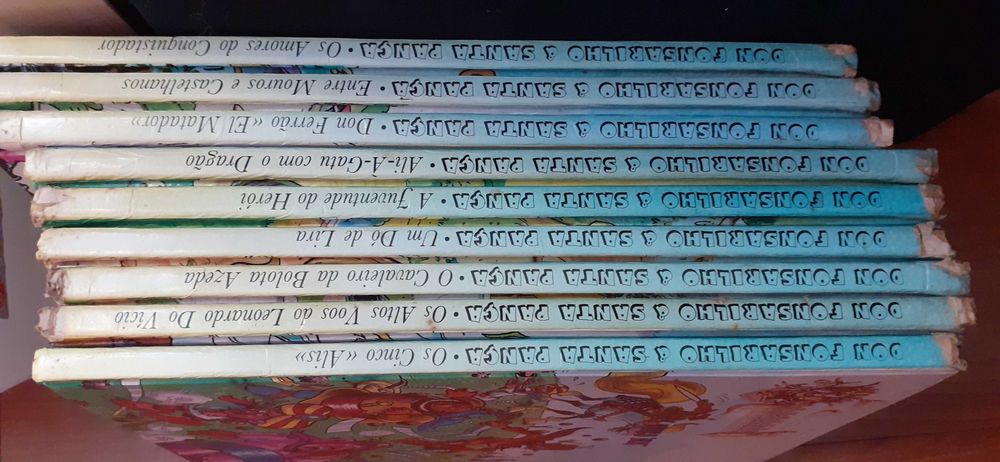 DON FONSARILHO & SANTA PANÇA • Os Cinco «Alis»
DON FONSARILHO & SANTA PANÇA • Os Altos Voos do Leonardo Do Vício
DON FONSARILHO & SANTA PANÇA • O Cavaleiro da Bolota Azeda
DON FONSARILHO & SANTA PANÇA • Um Dó de Lira
DON FONSARILHO & SANTA PANÇA • A Juventude do Herói
DON FONSARILHO & SANTA PANÇA • Ali-Á-Gatu com o Dragão
DON FONSARILHO & SANTA PANÇA • Don Ferrão «El Matador»
DON FONSARILHO & SANTA PANÇA • Entre Mouros e Castelhanos
DON FONSARILHO & SANTA PANÇA • Os Amores do Conquistador